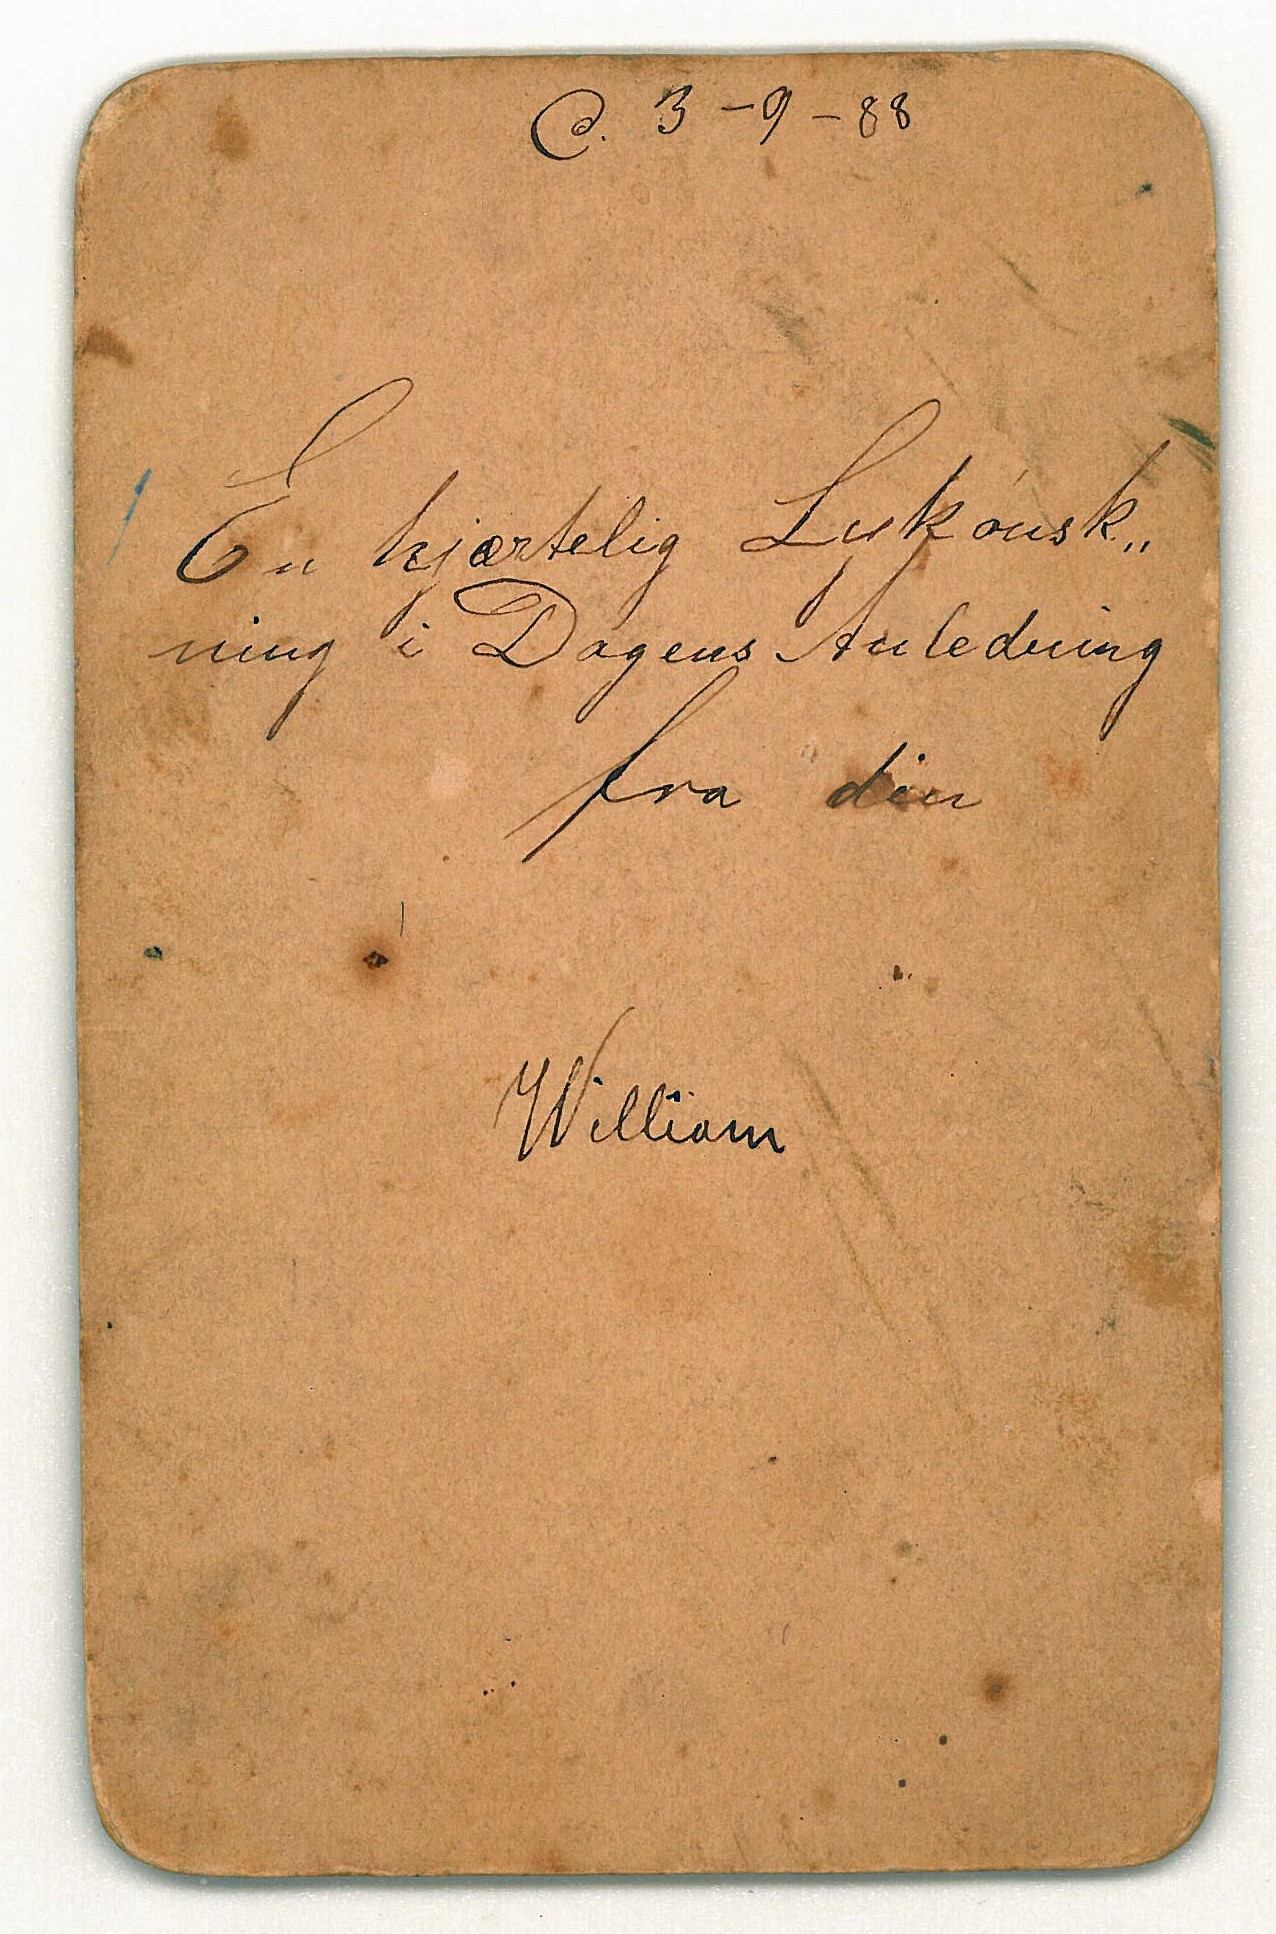 C. 3-9-88
En hjærtelig Lykønsk„
ning i Dagens Anledning
fra din
William